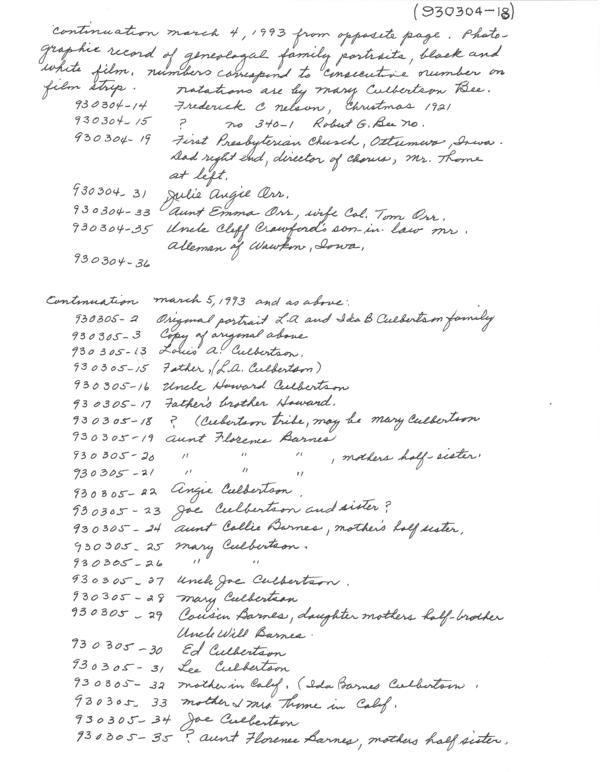 (930304-18)
Continuation march 4, 1993 from opposite page. Photo-
graphic record of geneologal family portraits, black and
white film. numbers correspond to consecutive number on
film strip. notations are by mary Culbertson Bee.
930304-14 Frederick C nelson, Christmas 1921
930304-15 ? no 340-1 Robert G. Bee no.
930304-19 First Presbyterian Church, Ottumwa, Iowa.
Dad right end, director of chorus, Mr. Thome
at left.
930304-31 Julie Angie Orr.
930304-33 Aunt Emma Orr, wife Col. Tom Orr.
930304-35 Uncle Cliff Crawford's son-in-law mr.
Alleman of Waukon, Iowa.
930304-36
Continuation march 5, 1993 and as above:
930305-2 Original portrait L.A and Ida B Culbertson family
930305-3 Copy of original above
930305-13 Louis A. Culbertson.
930305-15 Father, (L.A. Culbertson)
930305-16 Uncle Howard Culbertson
930305-17 Father's brother Howard.
930305-18 ? (Culbertson tribe, may be mary Culbertson
930305-19 aunt Florence Barnes
930305-20 " " " , mothers half-sister.
930305-21 " " "
930305-22 Angie Culbertson.
930305-23 Joe Culbertson and sister?
930305-24 aunt Callie Barnes, mother's half sister.
930305-25 mary Culbertson.
930305-26 " "
930305-27 Uncle Joe Culbertson.
930305-28 mary Culbertson
930305-29 Cousin Barnes, daughter mothers half-brother
Uncle Will Barnes.
930305-30 Ed Culbertson
930305-31 Lee Culbertson
930305-32 mother in Calif. (Ida Barnes Culbertson.
930305-33 mother & mrs Thome in Calif.
930305-34 Joe Culbertson
930305-35 ? aunt Florence Barnes, mothers half sister.